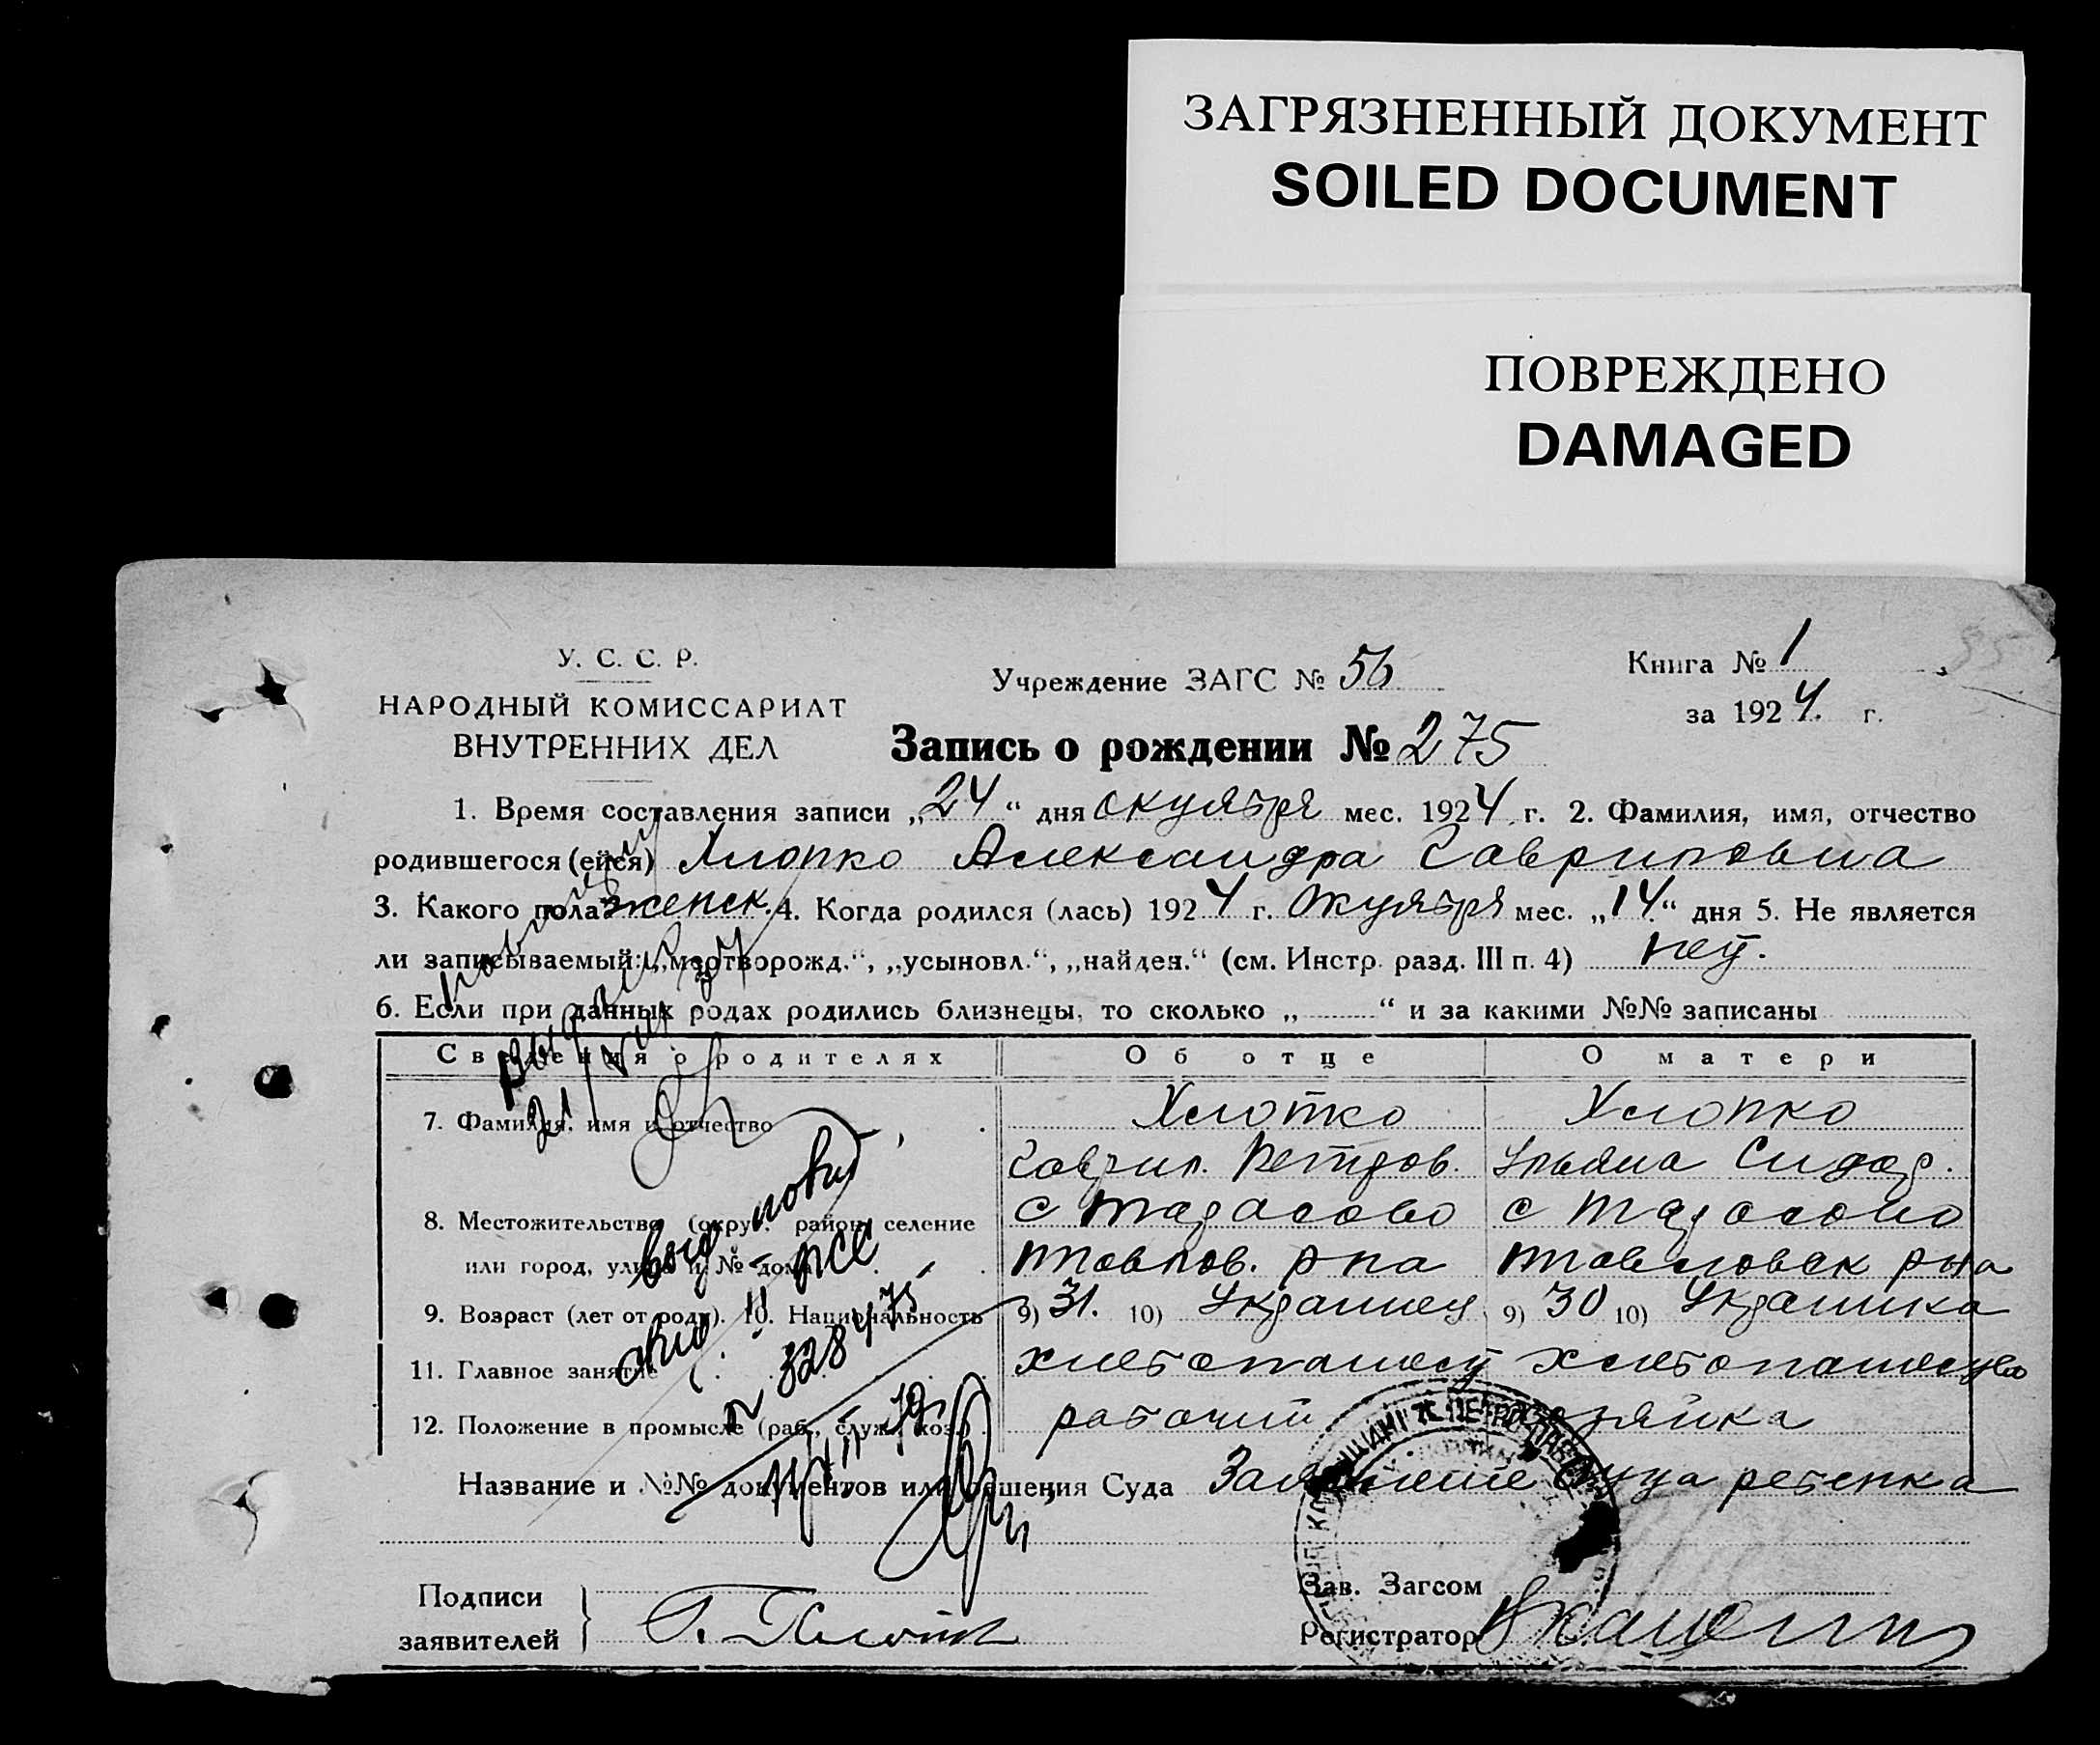 ЗАГРЯЗНЕННЫЙ ДОКУМЕНТ
SOILED DOCUMENT
ПОВРЕЖДЕНО
DAMAGED
У. С. С. Р.
НАРОДНЫЙ КОМИССАРИАТ
ВНУТРЕННИХ ДЕЛ
Учреждение ЗАГС № 56
Книга № 1
за 1924 г.
Запись о рождении № 275
1. Время составления записи „24“ дня октября мес. 1924 г. 2. Фамилия, имя, отчество
родившегося (ейся) Хлопко Александра Гавриловна
3. Какого пола женск. 4. Когда родился (лась) 1924 г. Октября мес. „14“ дня 5. Не является
ли записываемый: „мертворожд.“, „усыновл.“, „найден.“ (см. Инстр. разд. III п. 4) нет.
6. Если при данных родах родились близнецы, то сколько „ “ и за какими №№ записаны
Сведения о родителях Об отце О матери
7. Фамилия, имя и отчество Хлопко Хлопко
Гаврил. Петров. Ульяна Сидор.
8. Местожительство (округ, район, селение с Тарасово с Тарасово
или город, улица и № дома Павлов. рна Павловск рна
9. Возраст (лет от роду). 10. Национальность 9) 31. 10) Украинец 9) 30 10) Украинка
11. Главное занятие хлебопашест хлебопашество
12. Положение в промысле (раб., служ., хоз.) рабочий хозяйка
Название и №№ документов или решения Суда Заявление отца ребенка
Подписи
заявителей
Г. Хлопко
Зав. Загсом
Регистратор
выд повт
II
328475